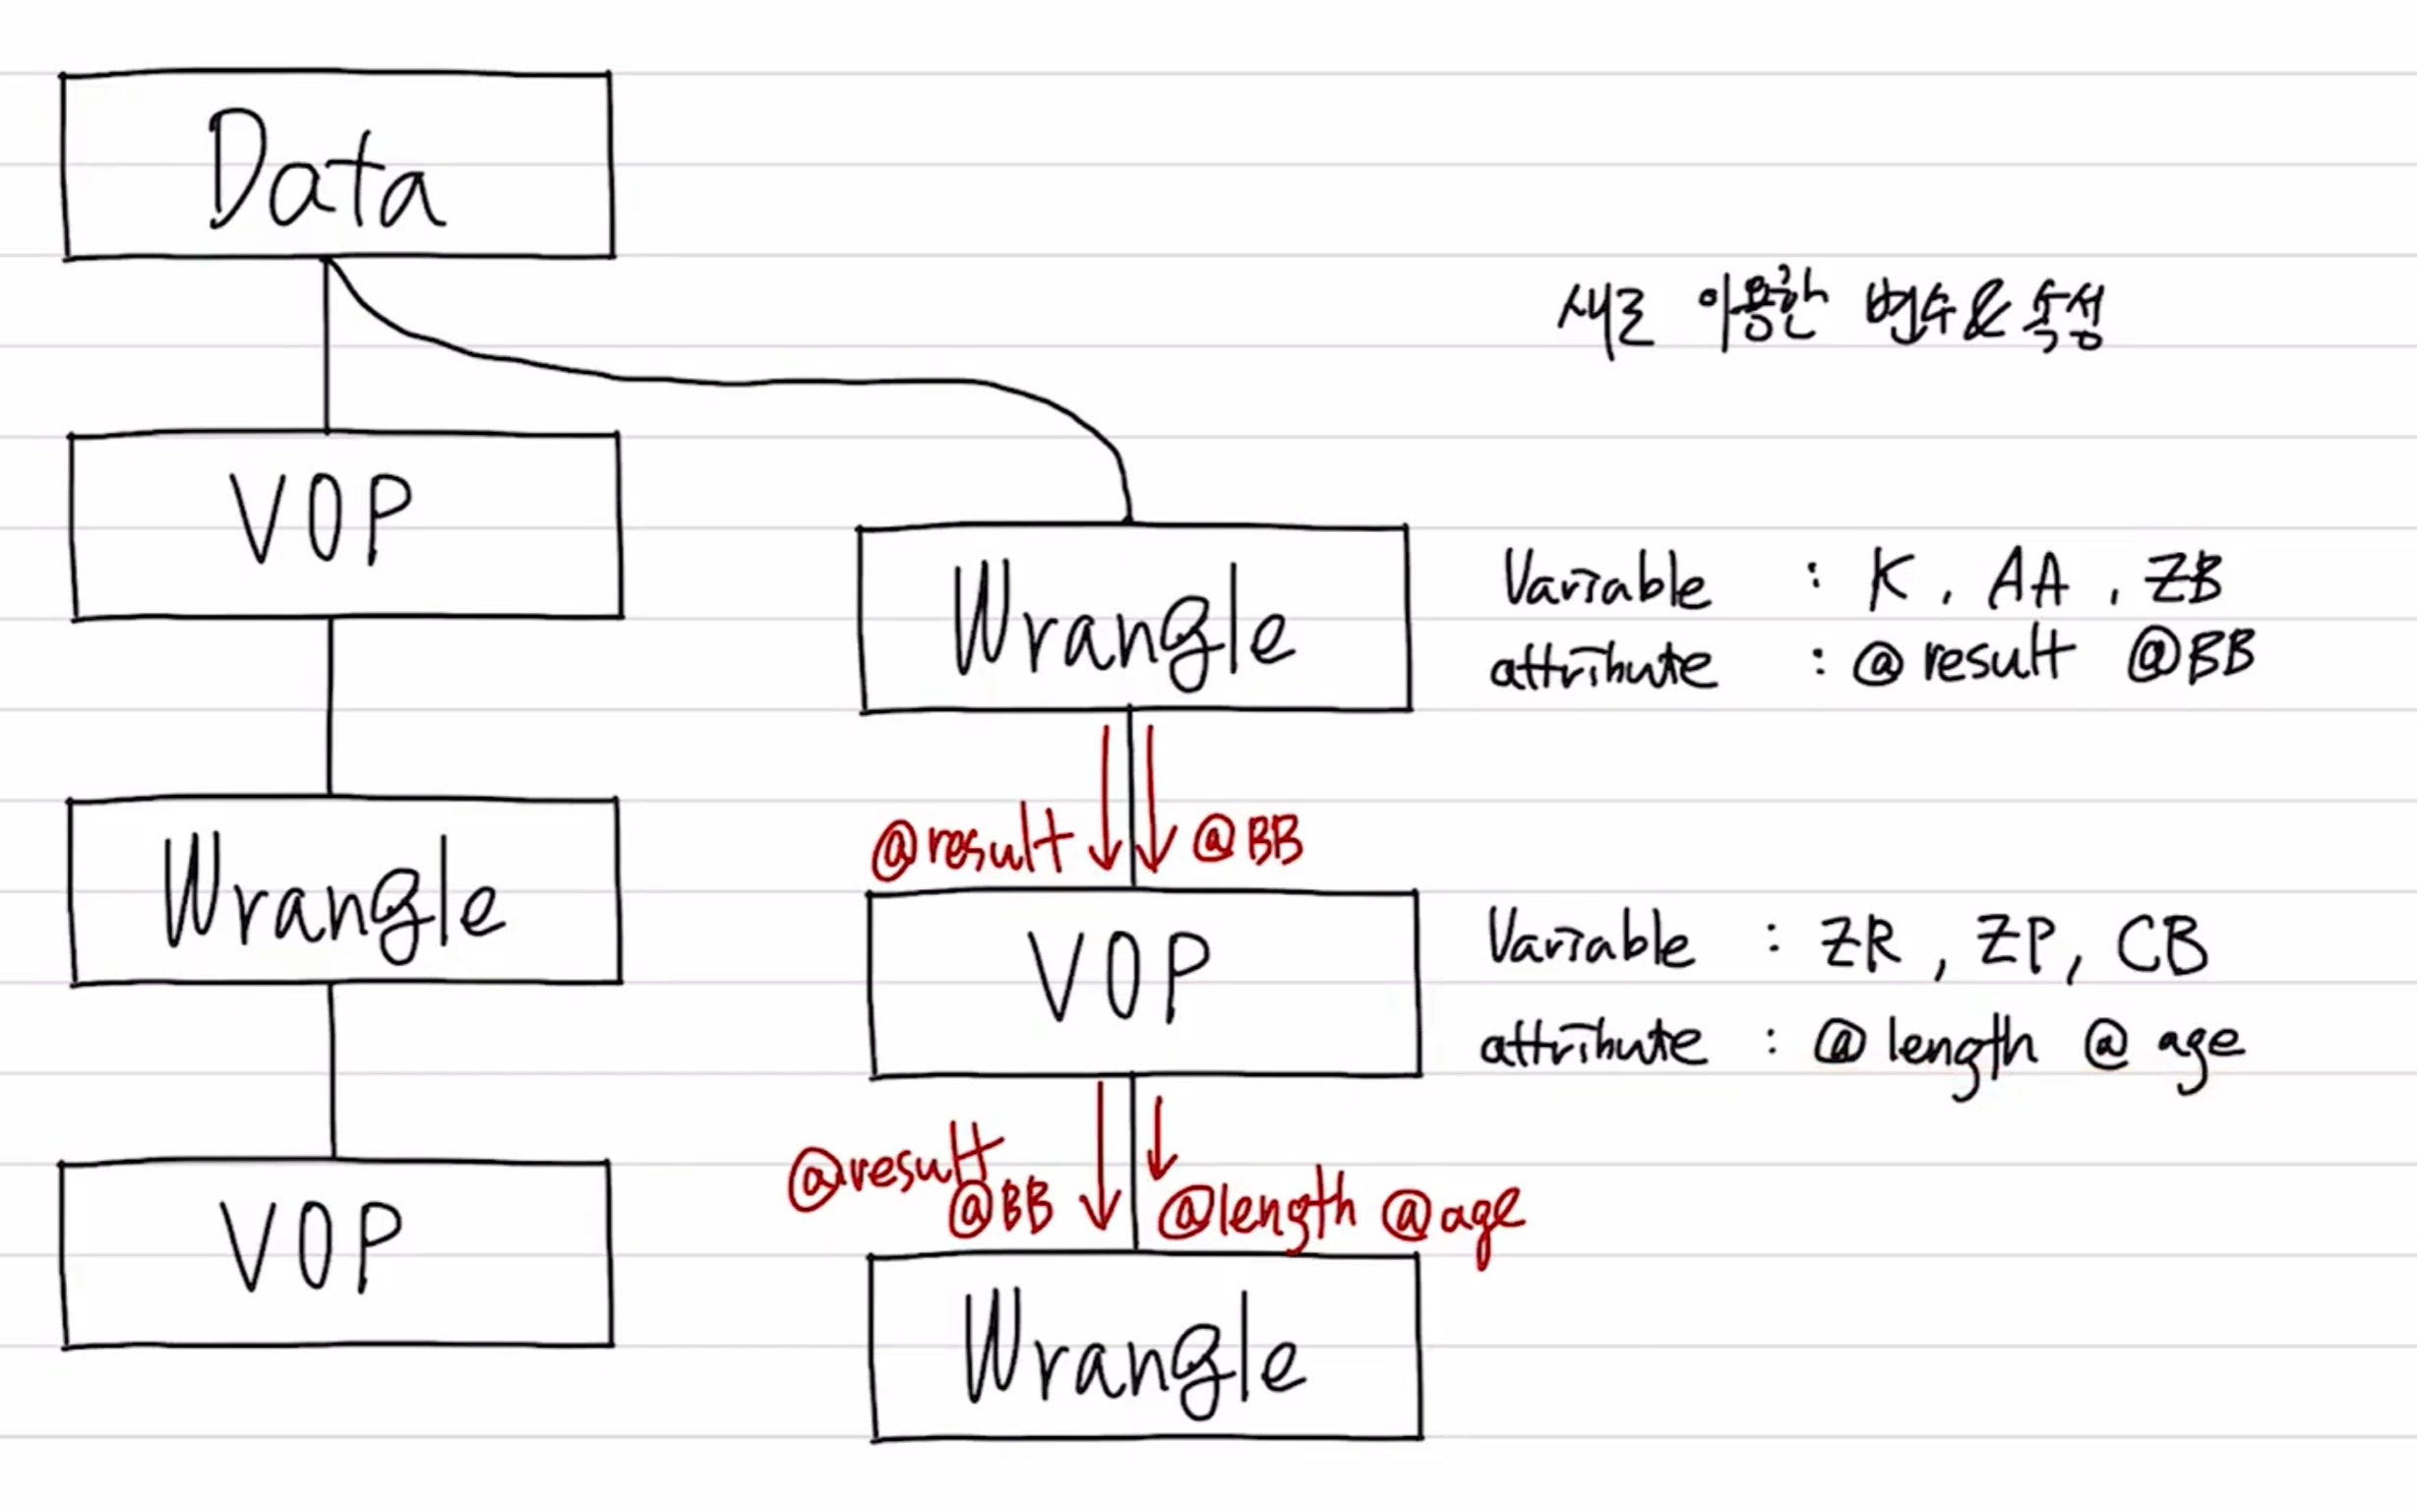 Data
새로 이용한 변수 & 속성
VOP
Wrangle
Variable : K, AA, ZB
attribute : @result @BB
@result @BB
Wrangle
VOP
Variable : ZR, ZP, CB
attribute : @length @age
@result
@BB @length @age
VOP
Wrangle